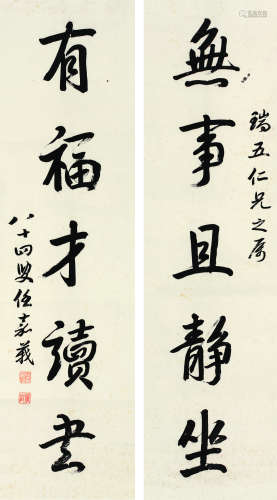 無事且靜坐
瑞五仁兄之屬
有福才讀書
八十四叟任嘉莪